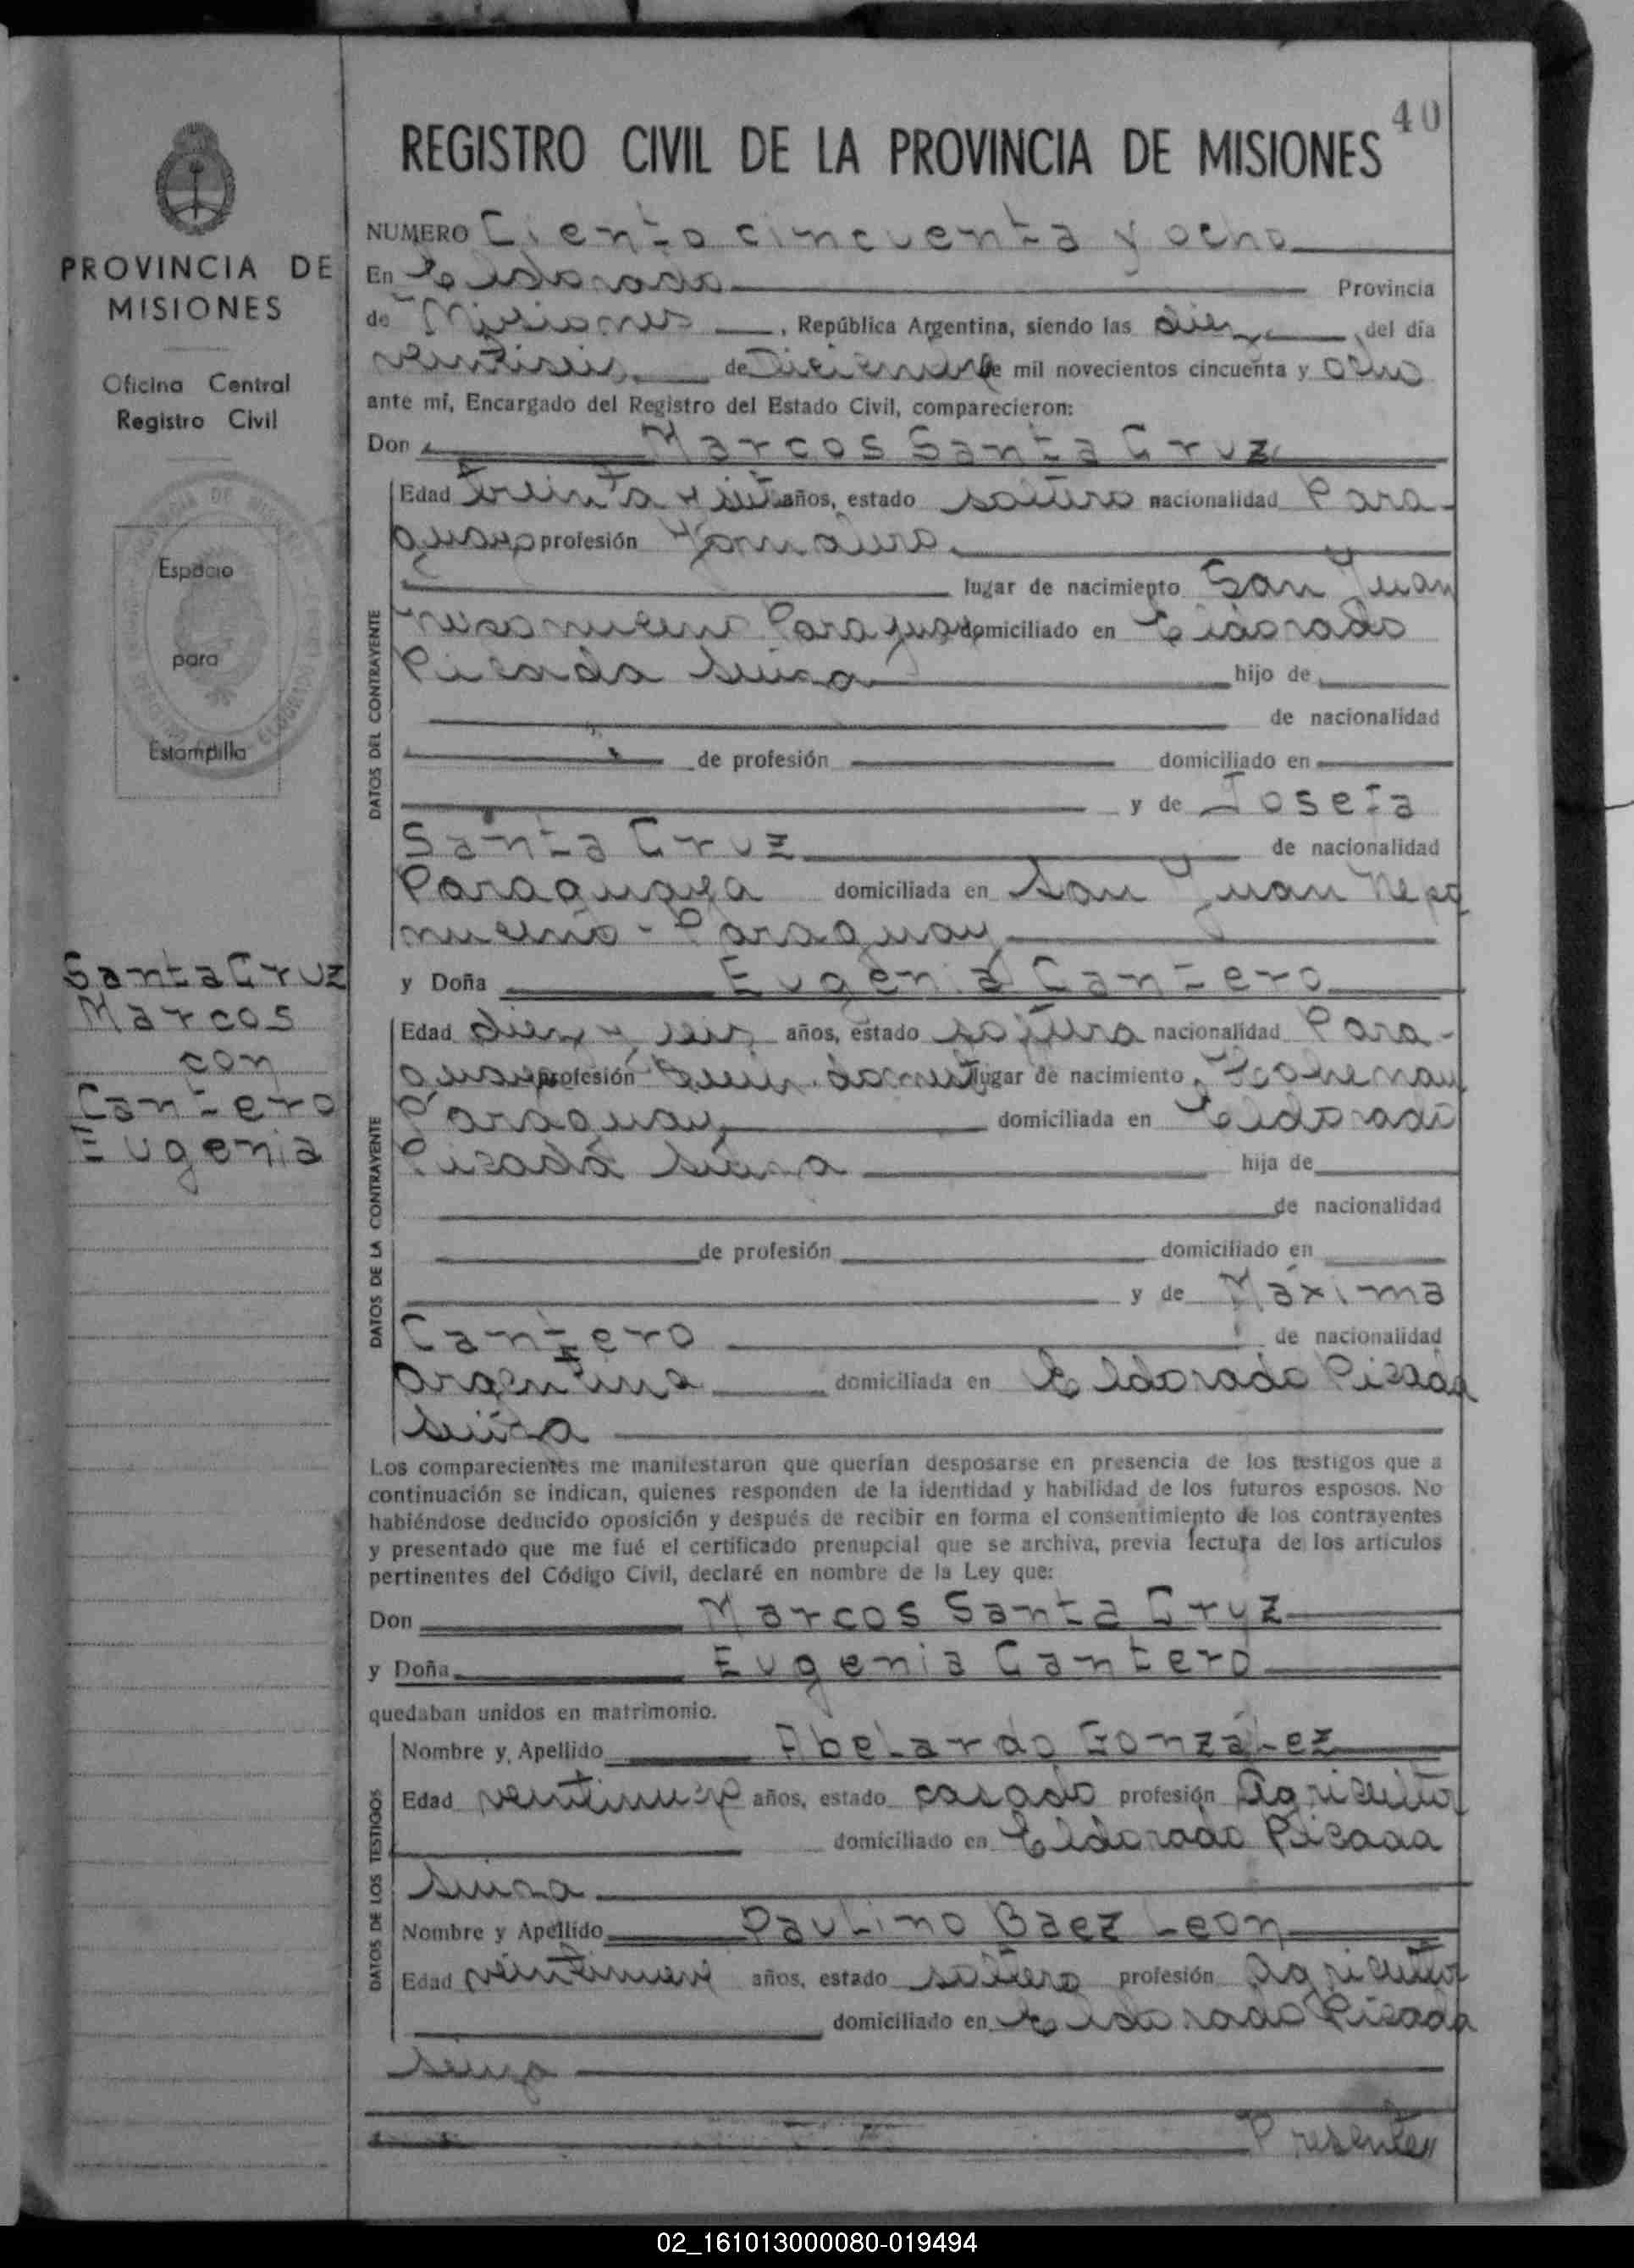 40
REGISTRO CIVIL DE LA PROVINCIA DE MISIONES
PROVINCIA DE
MISIONES
Oficina Central
Registro Civil
Espacio
para
Estampilla
Santa Cruz
Marcos
con
Cantero
Eugenia
NUMERO Ciento cincuenta y ocho
En Eldorado Provincia
de Misiones, República Argentina, siendo las diez del día
veintiseis de Diciembre de mil novecientos cincuenta y ocho
ante mí, Encargado del Registro del Estado Civil, comparecieron:
Don Marcos Santa Cruz
DATOS DEL CONTRAYENTE
Edad treinta y siete años, estado soltero nacionalidad Para-
guayo profesión Jornalero
lugar de nacimiento San Juan
nepomuceno Paraguay domiciliado en Eldorado
Picada Suiza hijo de
de nacionalidad
de profesión domiciliado en
y de Josefa
Santa Cruz de nacionalidad
Paraguaya domiciliada en San Juan Nepo
muceno - Paraguay
y Doña Eugenia Cantero
DATOS DE LA CONTRAYENTE
Edad diez y seis años, estado soltera nacionalidad Para-
guaya profesión lugar de nacimiento Hohenau
Paraguay domiciliada en Eldorado
Picada Suiza hija de
de nacionalidad
de profesión domiciliado en
y de Máxima
Cantero de nacionalidad
argentina domiciliada en Eldorado Picada
Suiza
Los comparecientes me manifestaron que querían desposarse en presencia de los testigos que a
continuación se indican, quienes responden de la identidad y habilidad de los futuros esposos. No
habiéndose deducido oposición y después de recibir en forma el consentimiento de los contrayentes
y presentado que me fué el certificado prenupcial que se archiva, previa lectura de los artículos
pertinentes del Código Civil, declaré en nombre de la Ley que:
Don Marcos Santa Cruz
y Doña Eugenia Cantero
quedaban unidos en matrimonio.
DATOS DE LOS TESTIGOS
Nombre y Apellido Abelardo González
Edad veintinueve años, estado casado profesión Agricultor
domiciliado en Eldorado Picada
Suiza
Nombre y Apellido Paulino Baez Leon
Edad veintinueve años, estado soltero profesión Agricultor
domiciliado en Eldorado Picada
Suiza
Presente
02_161013000080-019494